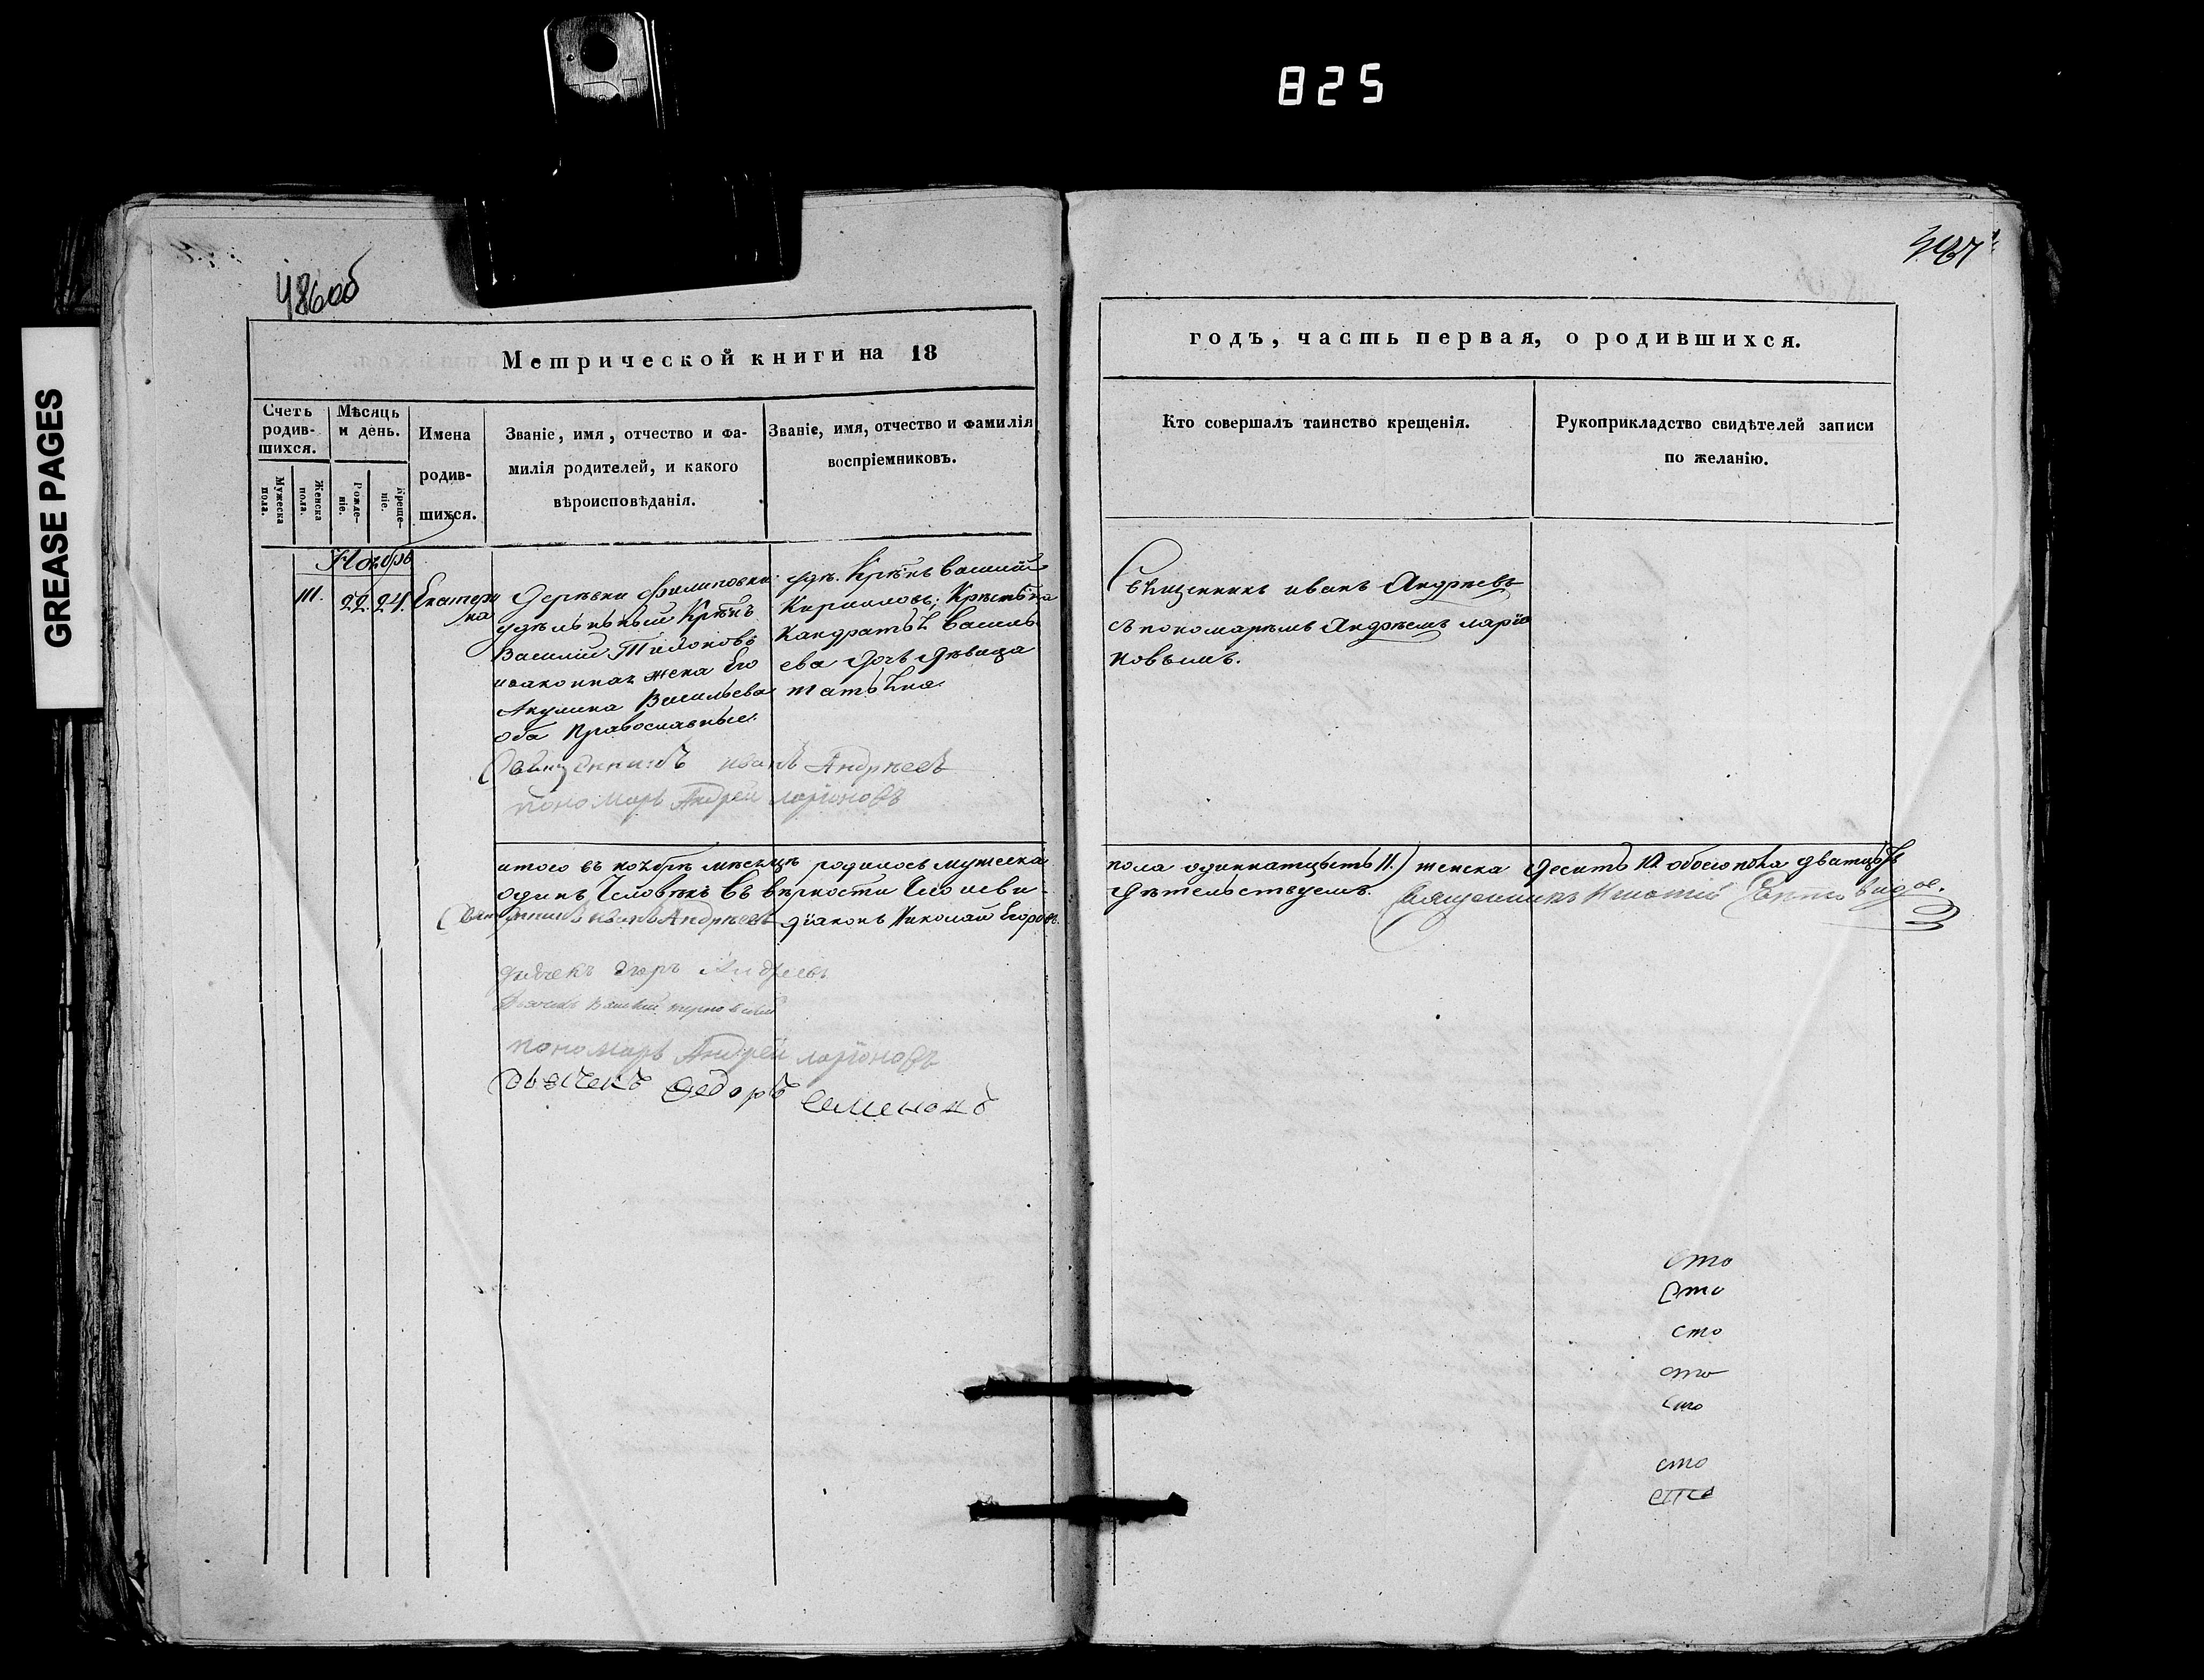 825
GREASE PAGES
486об
487
Метрической книги на 18
годъ, часть первая, о родившихся.
Счетъ родив-шихся.
Мужеска пола.
Женска пола.
Мѣсяцъ и день.
Рожде-ніе.
Креще-ніе.
Имена родив-шихся.
Званіе, имя, отчество и фа-
милія родителей, и какого
вѣроисповѣданія.
Званіе, имя, отчество и фамилія
воспріемниковъ.
Кто совершалъ таинство крещенія.
Рукоприкладство свидѣтелей записи
по желанію.
Ноябрь
22. 24. Екатери
на
Деревни Филиповки
удѣльный Крѣнъ
Василий
изаконная жена Его
Акулина Васильева
оба Православные.
удѣ. Крѣнъ Василий
Кириловъ; Крестьна
Кандратья Василь
ева дочь дѣвица
татьяна
Священникъ иванъ Андреевъ
съ пономаремъ Андреемъ ларіо
новымъ.
Священникъ иванъ Андреевъ
пономарь Андрей ларіоновъ
итого въ ноябрѣ мѣсяцѣ родилось мужеска
пола одиннатцеть 11.) женска десить 10. обоего пола дватцеть
одинъ Человѣкъ Въ вѣрности чего исви-
дѣтельствуемъ.
Священникъ
Священникъ иванъ Андреевъ діаконъ Николай Егоровъ.
дьячекъ Андреевъ
пономарь Андрей ларіоновъ
дьячекъ Федоръ Семеновъ
сто
сто
сто
сто
сто
сто
сто